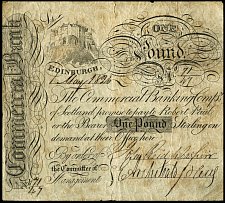 ONE
Pound
EDINBURGH
May 1820
No 71/47
The Commercial Banking Compy
of Scotland promise to pay to Robert Paul
or the Bearer One Pound Sterling on
demand at their Office here
By order of
the Committee of
Management
No 71/47
Commercial Bank